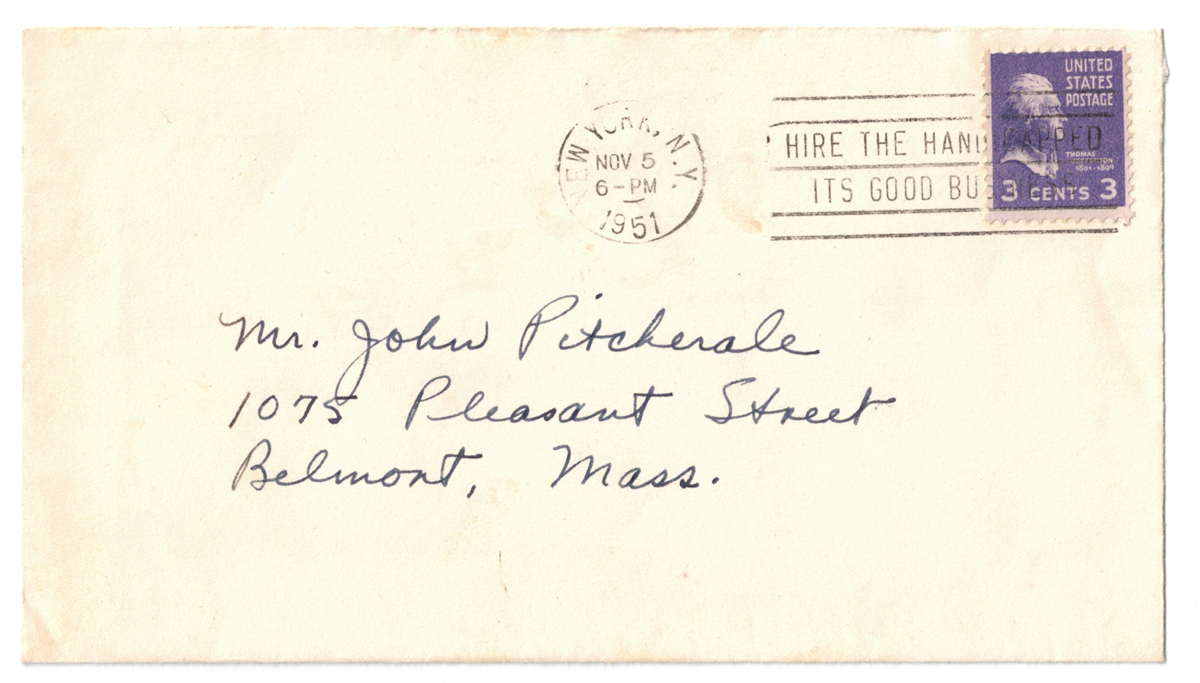 NEW YORK, N.Y.
NOV 5
6-PM
1951
HIRE THE HANDICAPPED
ITS GOOD BUSINESS
UNITED
STATES
POSTAGE
THOMAS
JEFFERSON
1801-1809
3 CENTS 3
Mr. John Pitcherale
1075 Pleasant Street
Belmont, Mass.